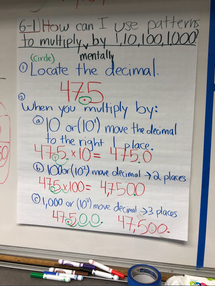 6-1 How can I use patterns
to multiply by 1,10,100,1000)
mentally
(circle)
① Locate the decimal.
47.5
②
When you multiply by:
ⓐ 10 or (10¹) move the decimal
to the right 1 place.
47.5 x 10 = 475.0
ⓑ 100 or (10²) move decimal → 2 places
47.5 x 100 = 4,7500
ⓒ 1,000 or (10³) move decimal → 3 places
47,500. 47,500.